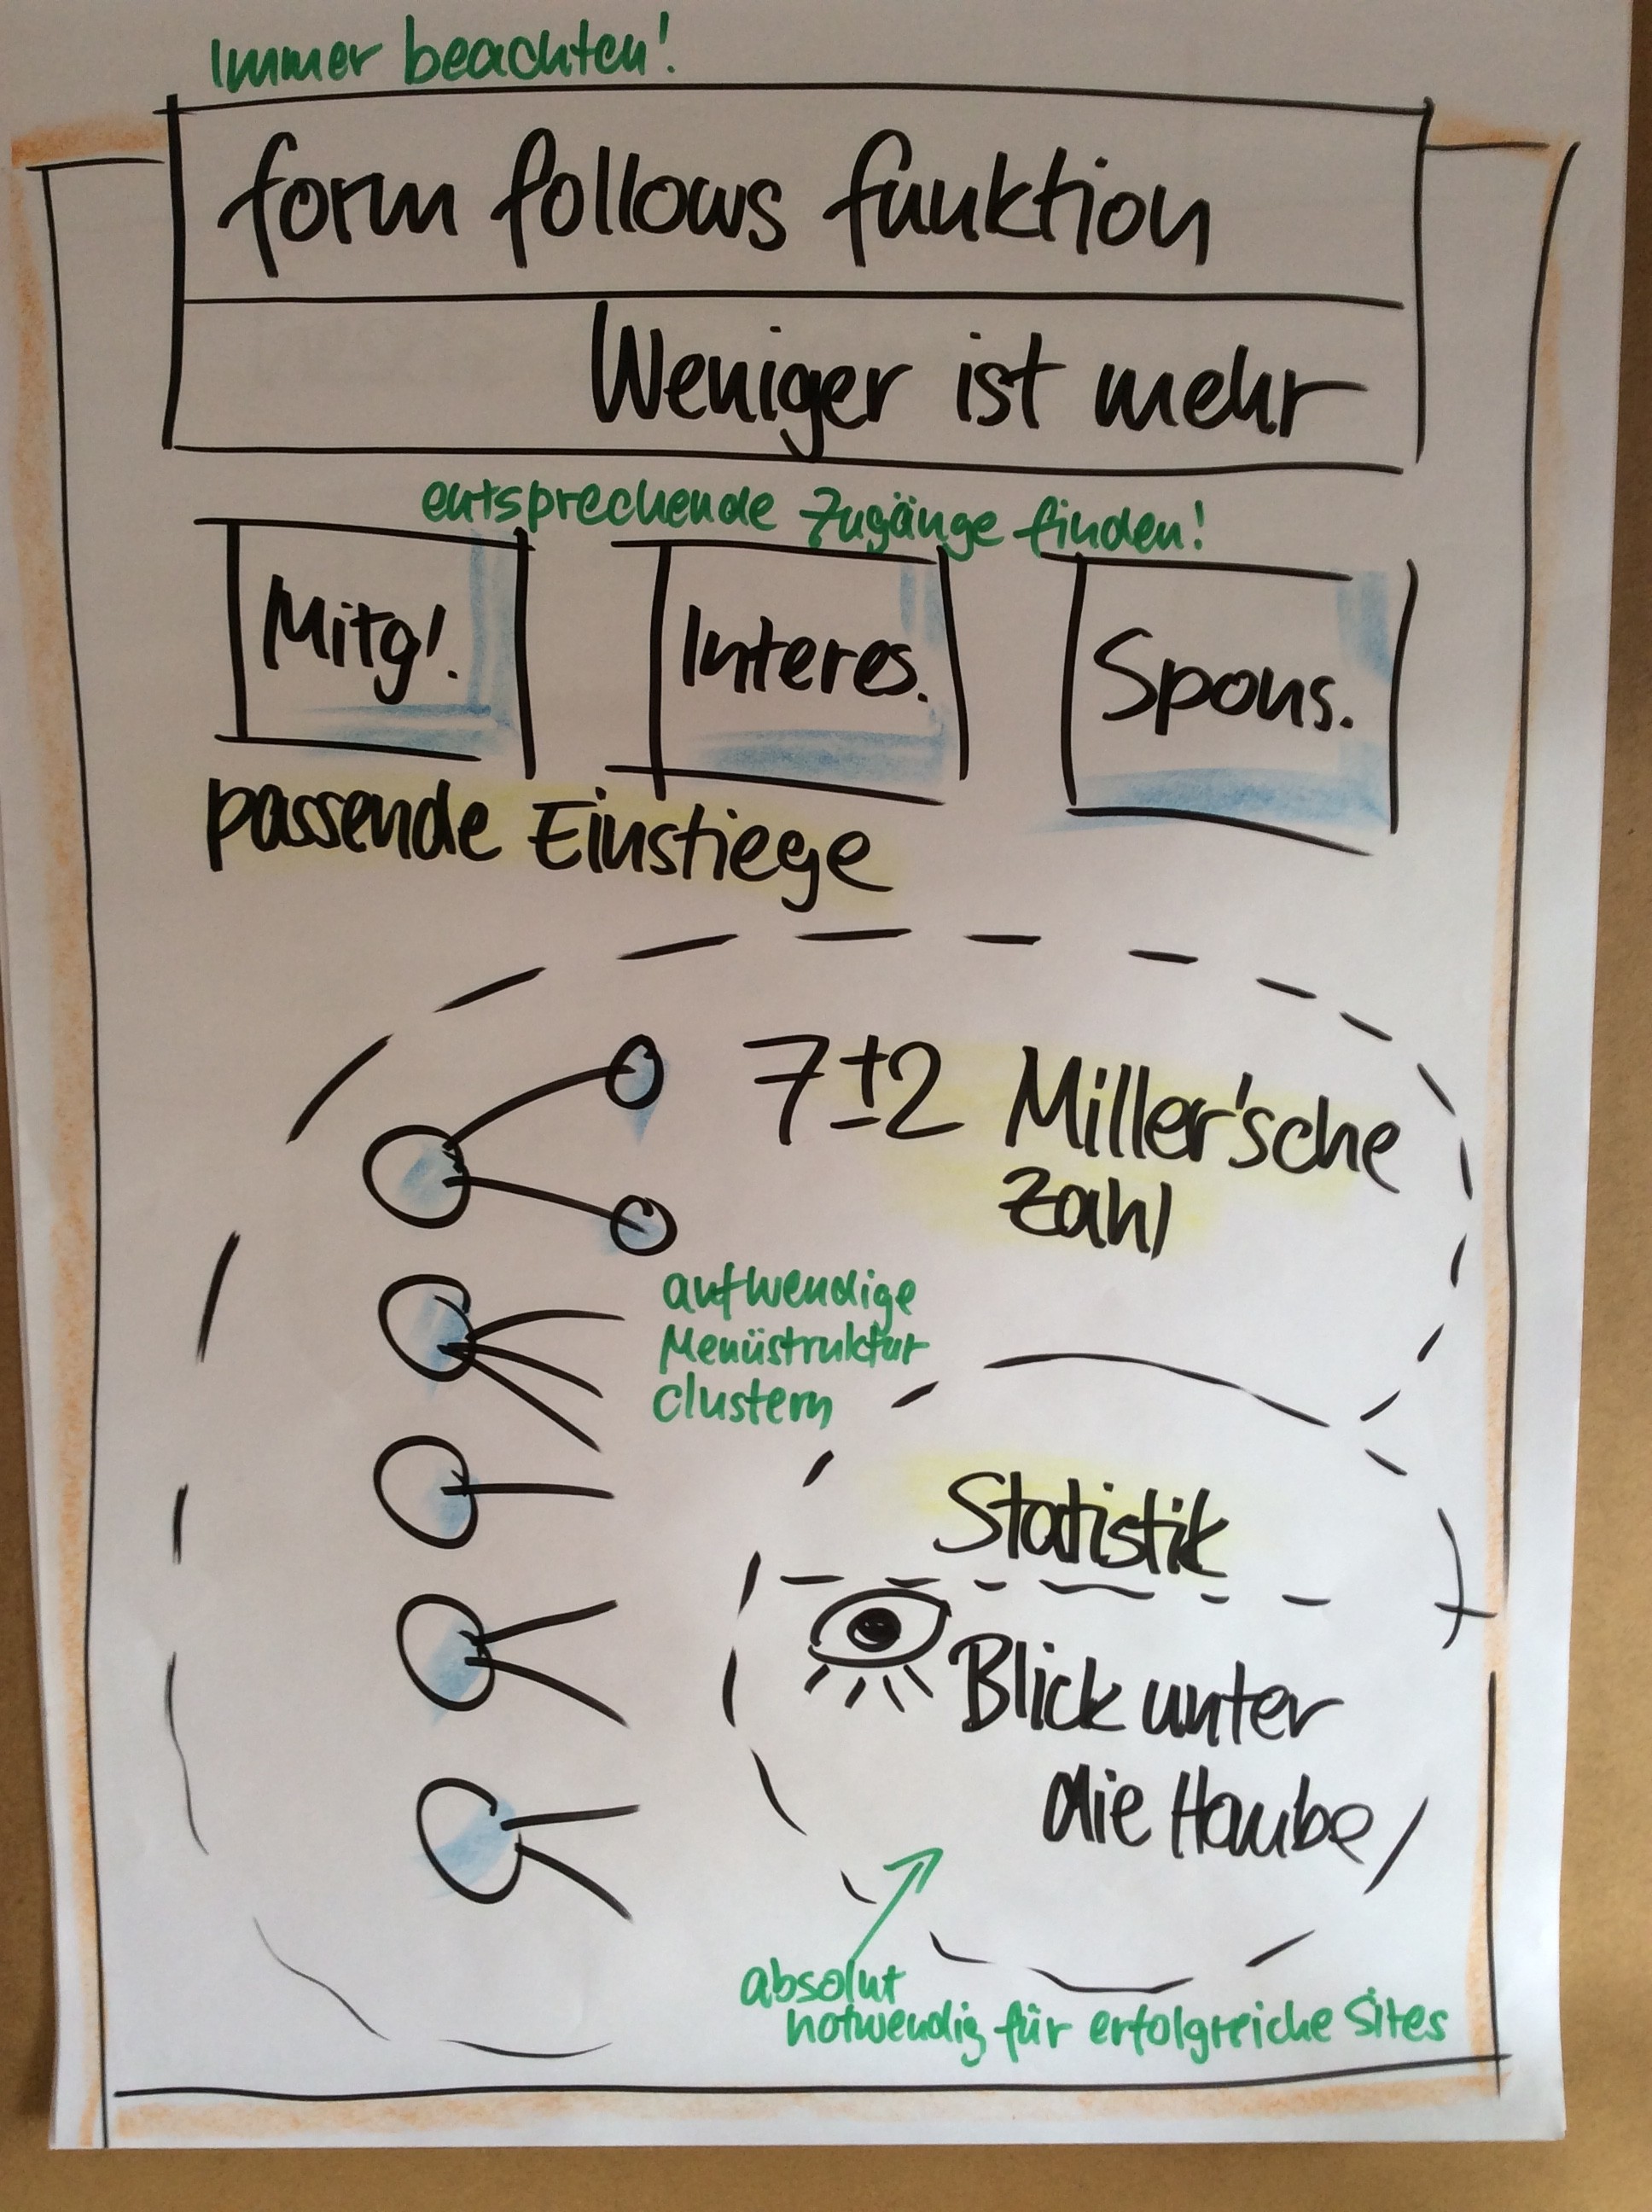 Immer beachten!
form follows funktion
Weniger ist mehr
entsprechende Zugänge finden!
Mitgl.
Interes.
Spons.
passende Einstiege
7±2 Miller'sche
Zahl
aufwendige
Menüstruktur
clustern
Statistik
Blick unter
die Haube
absolut
notwendig für erfolgreiche Sites